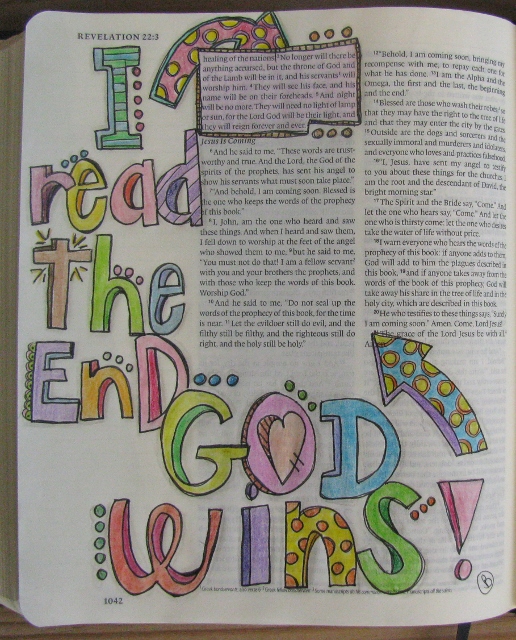 REVELATION 22:3
I
read
the
End...
GOD
wins!
healing of the nations. 3 No longer will there be
anything accursed, but the throne of God and
of the Lamb will be in it, and his servants will
worship him. 4 They will see his face, and his
name will be on their foreheads. 5 And night
will be no more. They will need no light of lamp
or sun, for the Lord God will be their light, and
they will reign forever and ever.
Jesus Is Coming
6 And he said to me, "These words are trust-
worthy and true. And the Lord, the God of the
spirits of the prophets, has sent his angel to
show his servants what must soon take place."
7 "And behold, I am coming soon. Blessed is
the one who keeps the words of the prophecy
of this book."
8 I, John, am the one who heard and saw
these things. And when I heard and saw them,
I fell down to worship at the feet of the angel
who showed them to me, 9 but he said to me,
"You must not do that! I am a fellow servant
with you and your brothers the prophets, and
with those who keep the words of this book.
Worship God."
10 And he said to me, "Do not seal up the
words of the prophecy of this book, for the time
is near. 11 Let the evildoer still do evil, and the
filthy still be filthy, and the righteous still do
right, and the holy still be holy."
12 "Behold, I am coming soon, bringing my
recompense with me, to repay each one for
what he has done. 13 I am the Alpha and the
Omega, the first and the last, the beginning
and the end."
14 Blessed are those who wash their robes, so
that they may have the right to the tree of life
and that they may enter the city by the gates.
15 Outside are the dogs and sorcerers and the
sexually immoral and murderers and idolaters,
and everyone who loves and practices falsehood.
16 "I, Jesus, have sent my angel to testify
to you about these things for the churches. I
am the root and the descendant of David, the
bright morning star."
17 The Spirit and the Bride say, "Come." And
let the one who hears say, "Come." And let the
one who is thirsty come; let the one who desires
take the water of life without price.
18 I warn everyone who hears the words of the
prophecy of this book: if anyone adds to them,
God will add to him the plagues described in
this book, 19 and if anyone takes away from the
words of the book of this prophecy, God will
take away his share in the tree of life and in the
holy city, which are described in this book.
20 He who testifies to these things says, "Surely
I am coming soon." Amen. Come, Lord Jesus!
The grace of the Lord Jesus be with all.
1042